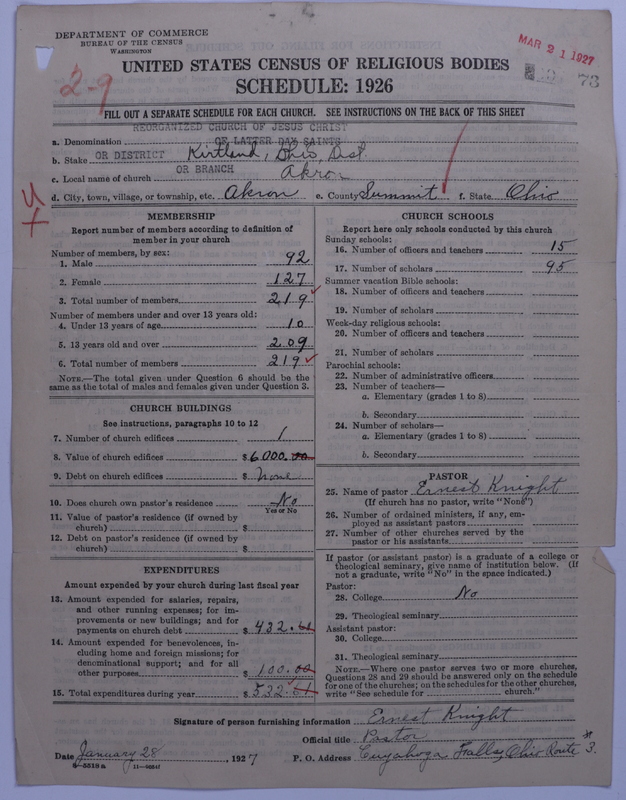 DEPARTMENT OF COMMERCE
BUREAU OF THE CENSUS
WASHINGTON
MAR 21 1927
UNITED STATES CENSUS OF RELIGIOUS BODIES
73
2-9
SCHEDULE: 1926
FILL OUT A SEPARATE SCHEDULE FOR EACH CHURCH. SEE INSTRUCTIONS ON THE BACK OF THIS SHEET
REORGANIZED CHURCH OF JESUS CHRIST
a. Denomination OF LATTER DAY SAINTS
b. Stake OR DISTRICT Kirtland, Ohio Dist.
c. Local name of church OR BRANCH Akron
d. City, town, village, or township, etc. Akron e. County Summit f. State Ohio
MEMBERSHIP
Report number of members according to definition of
member in your church
Number of members, by sex:
1. Male 92
2. Female 127
3. Total number of members 219
Number of members under and over 13 years old:
4. Under 13 years of age 10
5. 13 years old and over 209
6. Total number of members 219
NOTE.—The total given under Question 6 should be the
same as the total of males and females given under Question 3.
CHURCH BUILDINGS
See instructions, paragraphs 10 to 12
7. Number of church edifices 1
8. Value of church edifices $6000.00
9. Debt on church edifices $ None
10. Does church own pastor's residence No
Yes or No
11. Value of pastor's residence (if owned by
church) $
12. Debt on pastor's residence (if owned by
church) $
EXPENDITURES
Amount expended by your church during last fiscal year
13. Amount expended for salaries, repairs,
and other running expenses; for im-
provements or new buildings; and for
payments on church debt $ 432.
14. Amount expended for benevolences, in-
cluding home and foreign missions; for
denominational support; and for all
other purposes $ 100.00
15. Total expenditures during year $ 532
CHURCH SCHOOLS
Report here only schools conducted by this church
Sunday schools:
16. Number of officers and teachers 15
17. Number of scholars 95
Summer vacation Bible schools:
18. Number of officers and teachers
19. Number of scholars
Week-day religious schools:
20. Number of officers and teachers
21. Number of scholars
Parochial schools:
22. Number of administrative officers
23. Number of teachers—
a. Elementary (grades 1 to 8)
b. Secondary
24. Number of scholars—
a. Elementary (grades 1 to 8)
b. Secondary
PASTOR
25. Name of pastor Ernest Knight
(If church has no pastor, write "None")
26. Number of ordained ministers, if any, em-
ployed as assistant pastors
27. Number of other churches served by the
pastor or his assistants
If pastor (or assistant pastor) is a graduate of a college or
theological seminary, give name of institution below. (If
not a graduate, write "No" in the space indicated.)
Pastor:
28. College No
29. Theological seminary
Assistant pastor:
30. College
31. Theological seminary
NOTE.—Where one pastor serves two or more churches,
Questions 28 and 29 should be answered only on the schedule
for one of the churches; on the schedules for the other churches,
write "See schedule for church."
Signature of person furnishing information Ernest Knight
Official title Pastor
Date January 28, 1927 P. O. Address Cuyahoga Falls, Ohio Route # 3.
8-5518a